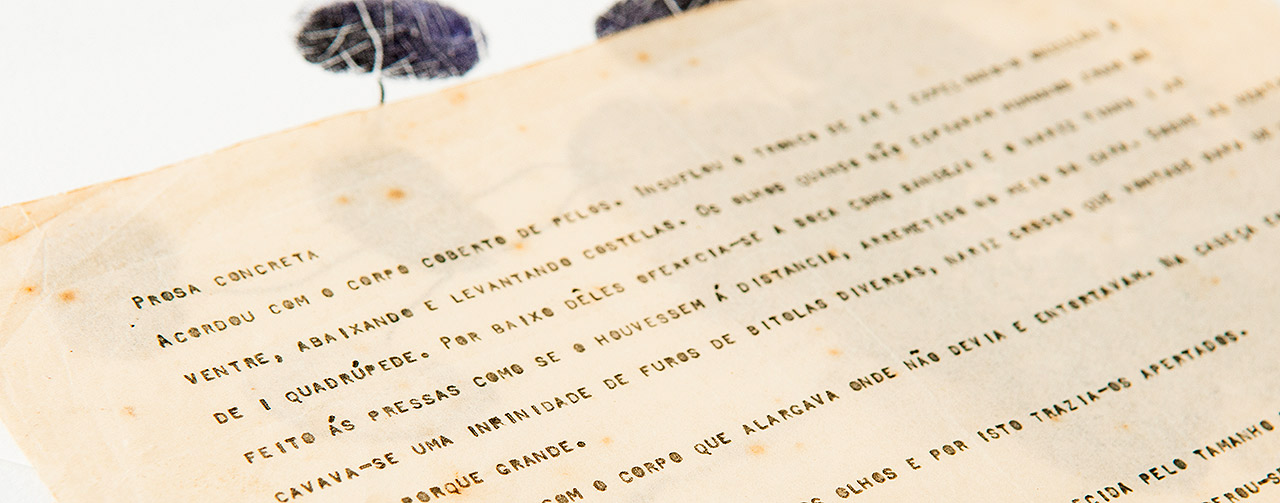 PROSA CONCRETA
ACORDOU COM O CORPO COBERTO DE PELOS. INSUFLOU O TRONCO DE AR E
VENTRE, ABAIXANDO E LEVANTANDO COSTELAS. OS OLHOS QUANDO NÃO
DE I QUADRÚPEDE. POR BAIXO DÊLES OFERFCIA-SE A BOCA COMO BANDEJA E O NARIZ
FEITO ÁS PRESSAS COMO SE O HOUVESSEM Á DISTANCIA, ARREMETIDO NO MEIO DA CARA.
CAVAVA-SE UMA INFINIDADE DE FUROS DE BITOLAS DIVERSAS, NARIZ GROSSO QUE
PORQUE GRANDE.
COM O CORPO QUE ALARGAVA ONDE NÃO DEVIA E ENTORTAVAM. NA CABEÇA
OLHOS E POR ISTO TRAZIA-OS APERTADOS.
PELO TAMANHO